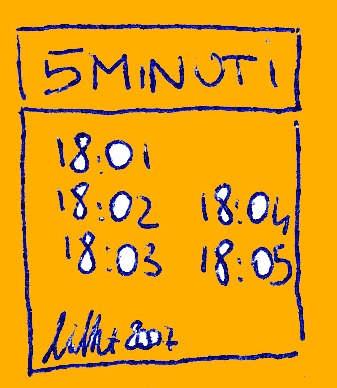 5 MINUTI
18:01
18:02 18:04
18:03 18:05
2007